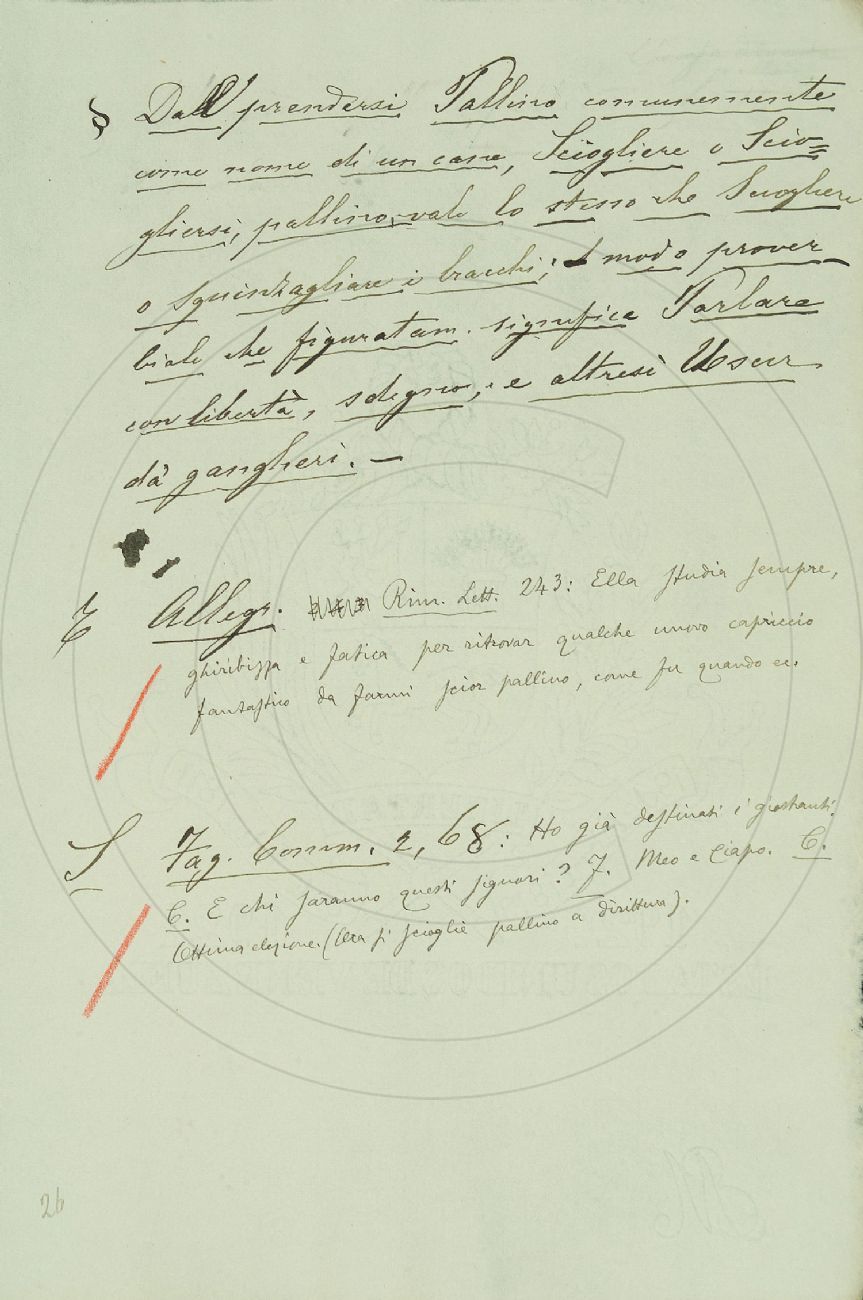 § Dall' prendersi Pallino comunemente
come nome di un cane, Sciogliere o Scio=
gliersi, pallino, vale lo stesso che Sciogliere
o Sguinzagliare i bracchi; modo prover-
biale che figuratam. significa Parlare
con libertà, sdegno, e altresì Uscir
da' gangheri. —
Allegr. Rim. Lett. 243: Ella studia sempre,
ghiribizza e fatica per ritrovar qualche nuovo capriccio
fantastico da farmi scior pallino, come fu quando ec.
S Fag. Comm. 2, 68: Ho già destinati i giostranti.
C. E chi saranno questi signori? F. Meo e Ciapo. C.
Ottima elezione. (Ora si scioglie pallino a dirittura).
26